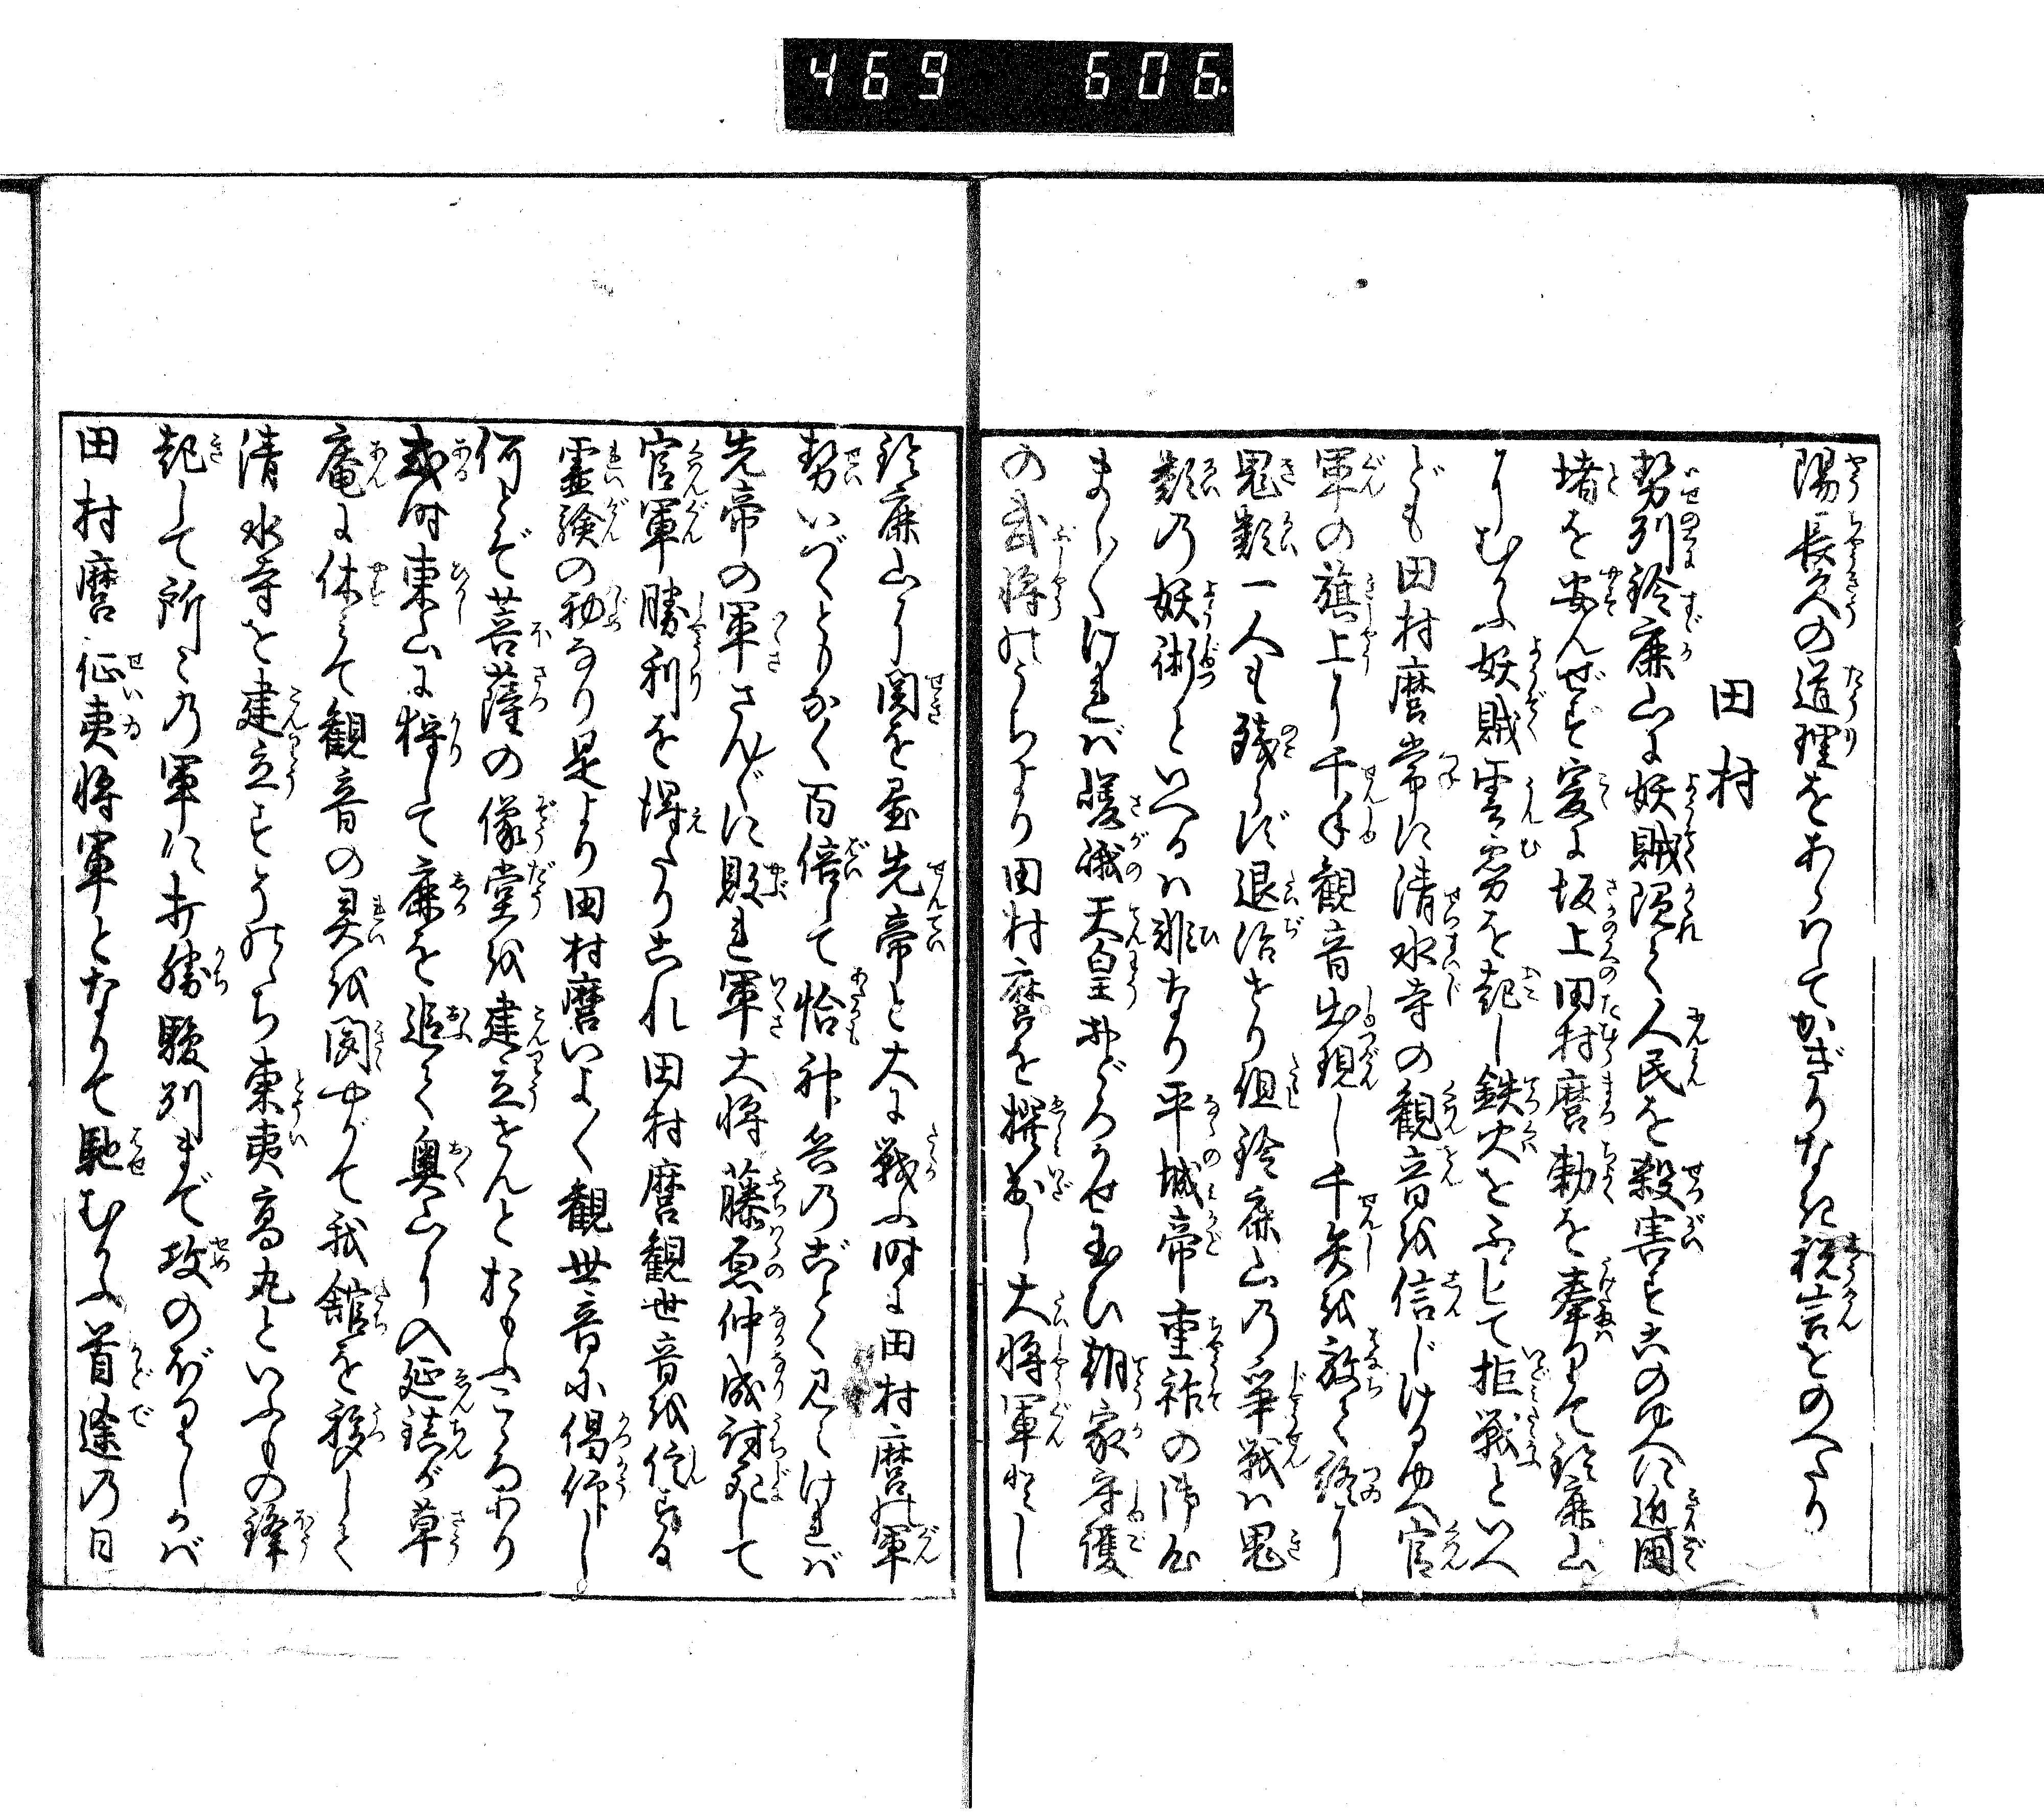 469 606
陽長久の道理をあらはしてかぎりなき祝言をのべたり
田村
勢州鈴鹿山に妖賊隠れて人民を殺害すこのゆへに近国
堵を安んぜず爰に坂上田村麿勅を奉りて鈴鹿山
にむかふ妖賊雲霧を起し鉄火をふらして拒戦といへ
ども田村麿常に清水寺の観音を信じけるゆへ官
軍の旗上に千手観音出現し千矢を放て終に
鬼類一人も残らず退治せり但鈴鹿山の争戦は鬼
類の妖術といへるは非なり平城帝重祚の御企
ましく〳〵ければ嵯峨天皇おどろかせ玉ひ朝家守護
の武将のうちより田村麿を撰出し大将軍とし
鈴鹿山に関を置先帝と大に戦ふ時に田村麿の軍
勢いづくともかく百倍して恰神兵のごとく見へければ
先帝の軍さん〴〵に敗れ軍大将藤原仲成討死して
官軍勝利を得たりこれ田村麿観世音を信ずる
霊験の初なり是より田村麿いよ〳〵観世音に渇仰し
何とぞ菩薩の像堂を建立せんとおもふころあり
或時東山に狩して鹿を追て奥山に入延鎮が草
庵に休みて観音の異を聞やがて我館を移して
清水寺を建立すそのゝち東夷高丸といふもの鋒
起して所々の軍に打勝駿州まで攻のぼりしかば
田村麿征夷将軍となりて馳むかふ首途の日